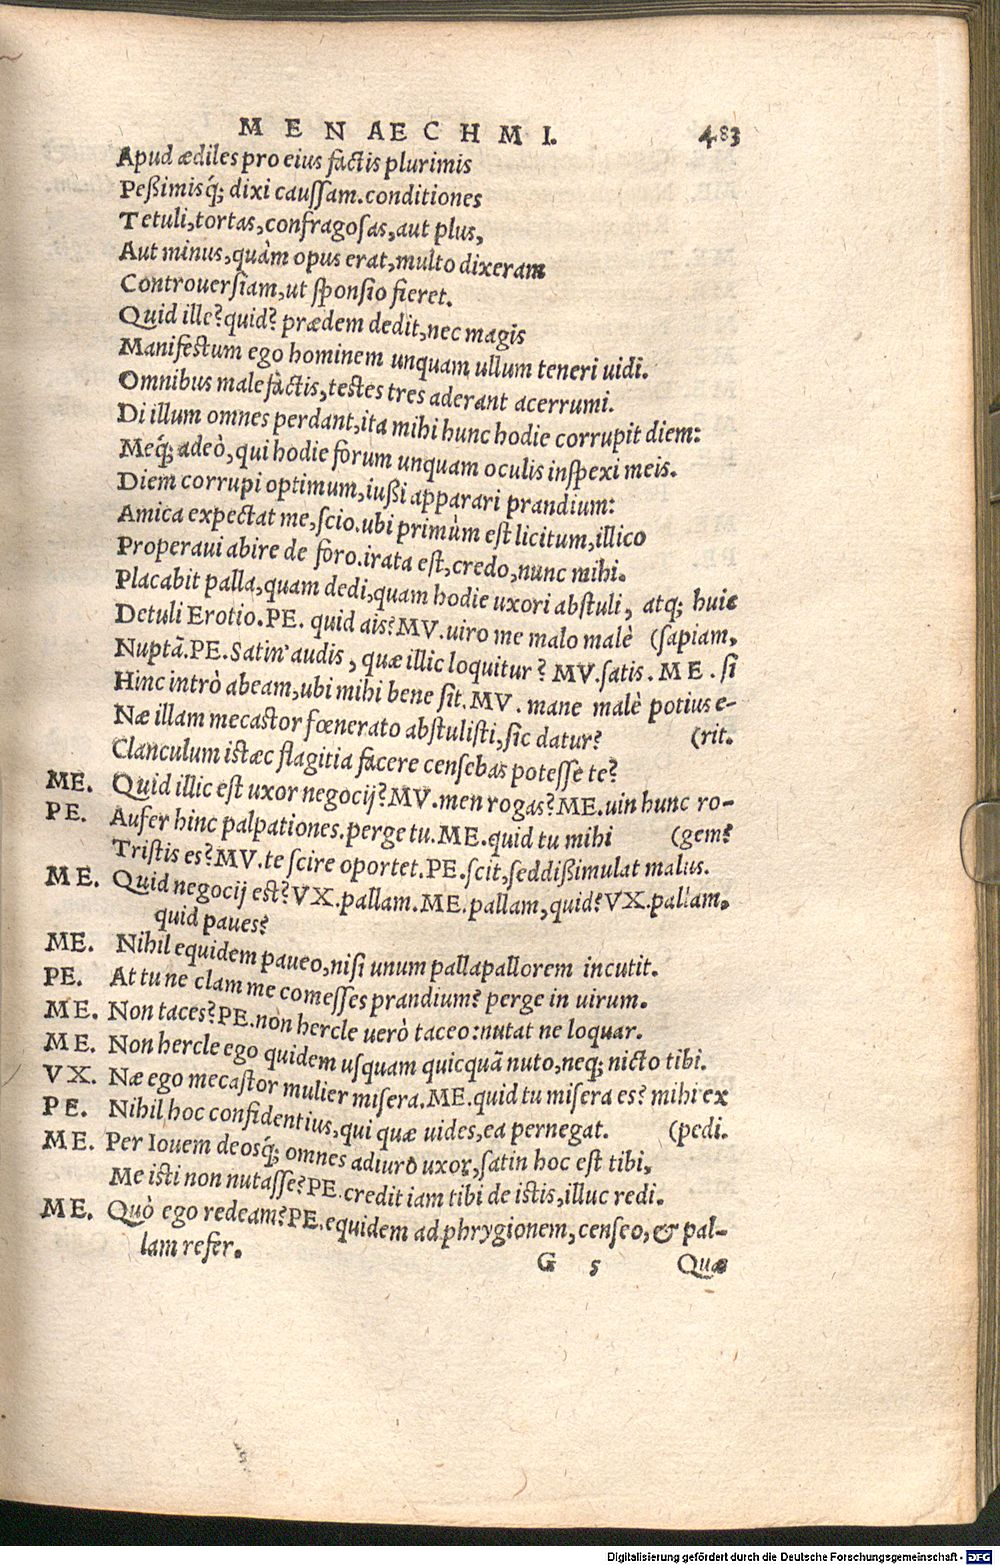 MENAECHMI. 483
Apud ædiles pro eius factis plurimis
Peßimisq́; dixi caussam. conditiones
Tetuli, tortas, confragosas, aut plus,
Aut minus, quàm opus erat, multo dixeram
Controuersiam, ut sponsio fieret.
Quid ille? quid? prædem dedit, nec magis
Manifestum ego hominem unquam ullum teneri uidi.
Omnibus malefactis, testes tres aderant acerrumi.
Di illum omnes perdant, ita mihi hunc hodie corrupit diem:
Meq́; adeò, qui hodie forum unquam oculis inspexi meis.
Diem corrupi optimum, iußi apparari prandium:
Amica expectat me, scio. ubi primùm est licitum, illico
Properaui abire de foro. irata est, credo, nunc mihi.
Placabit palla, quam dedi, quam hodie uxori abstuli, atq; huic
Detuli Erotio. PE. quid ais? MV. uiro me malo malè (sapiam,
Nuptã. PE. Satin' audis, quæ illic loquitur? MV. satis. ME. si
Hinc intrò abeam, ubi mihi bene sit. MV. mane malè potius e-
Næ illam mecastor fœnerato abstulisti, sic datur? (rit.
Clanculum istæc flagitia facere censebas potesse te?
ME. Quid illic est uxor negocij? MV. men rogas? ME. uin hunc ro-
PE. Aufer hinc palpationes. perge tu. ME. quid tu mihi (gem?
Tristis es? MV. te scire oportet. PE. scit, sed dißimulat malus.
ME. Quid negocij est? VX. pallam. ME. pallam, quid? VX. pallam.
quid paues?
ME. Nihil equidem paueo, nisi unum palla pallorem incutit.
PE. At tu ne clam me comesses prandium? perge in uirum.
ME. Non taces? PE. non hercle uerò taceo: nutat ne loquar.
ME. Non hercle ego quidem usquam quicquã nuto, neq; nicto tibi.
VX. Næ ego mecastor mulier misera. ME. quid tu misera es? mihi ex
PE. Nihil hoc confidentius, qui quæ uides, ea pernegat. (pedi.
ME. Per Iouem deosq́; omnes adiuro uxor, satin hoc est tibi,
Me isti non nutasse? PE. credit iam tibi de istis, illuc redi.
ME. Quò ego redeam? PE. equidem ad phrygionem, censeo, & pal-
lam refer.
G 5 Quæ
Digitalisierung gefördert durch die Deutsche Forschungsgemeinschaft - DFG